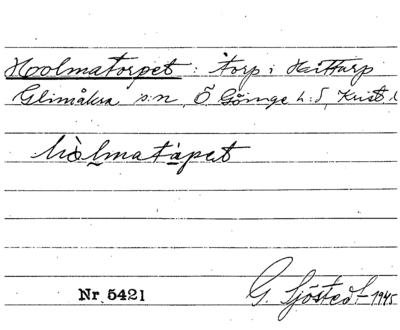 Hoolmatorpet: torp i Hittarp
Glimåkra s:n, Ö. Göinge h:d, Krist. l
hòlmatàpet
Nr 5421 G. Sjöstedt 1945